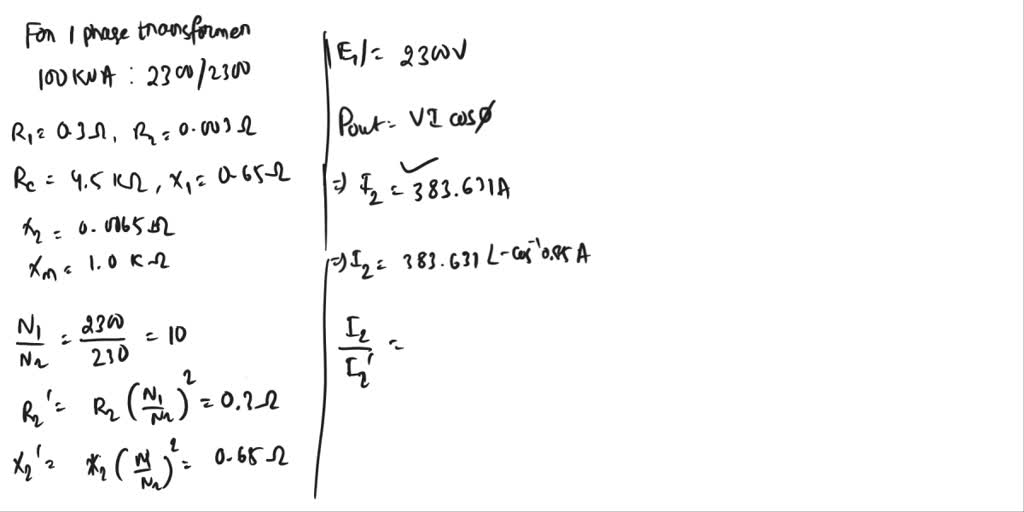 For 1 phage transformer
100 KVA : 2300/2300
R₁ = 0.3Ω, R₂ = 0.003Ω
Rc = 4.5 KΩ, X₁ = 0.65Ω
X₂ = 0.0065Ω
Xm = 1.0 KΩ
N₁/N₂ = 2300/230 = 10
R₂' = R₂ (N₁/N₂)² = 0.3Ω
X₂' = X₂ (N₁/N₂)² = 0.65Ω
|E₁| = 2300V
Pout = VI cosφ
⇒ I₂ = 383.631A
⇒ I₂ = 383.631 ∠-cos⁻¹0.85 A
I₂/I₂' =